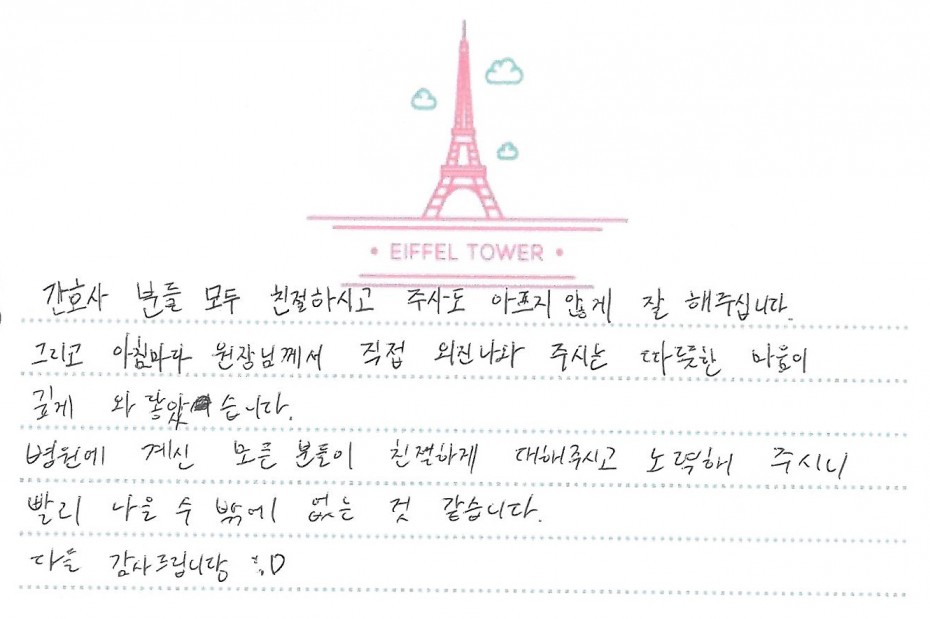 • EIFFEL TOWER •
간호사 분들 모두 친절하시고 주사도 아프지 않게 잘 해주십니다.
그리고 아침마다 원장님께서 직접 외진나와 주시는 따듯한 마음이
깊게 와 닿았습니다.
병원에 계신 모든 분들이 친절하게 대해주시고 노력해 주시니
빨리 나을 수 밖에 없는 것 같습니다.
다들 감사드립니당 :D